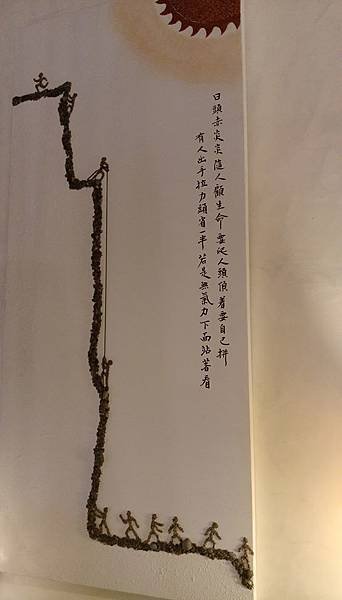 日頭赤炎炎隨人顧生命要人頭着要自己拼
有人出手拉力頭省一半若是無氣力下面站著看